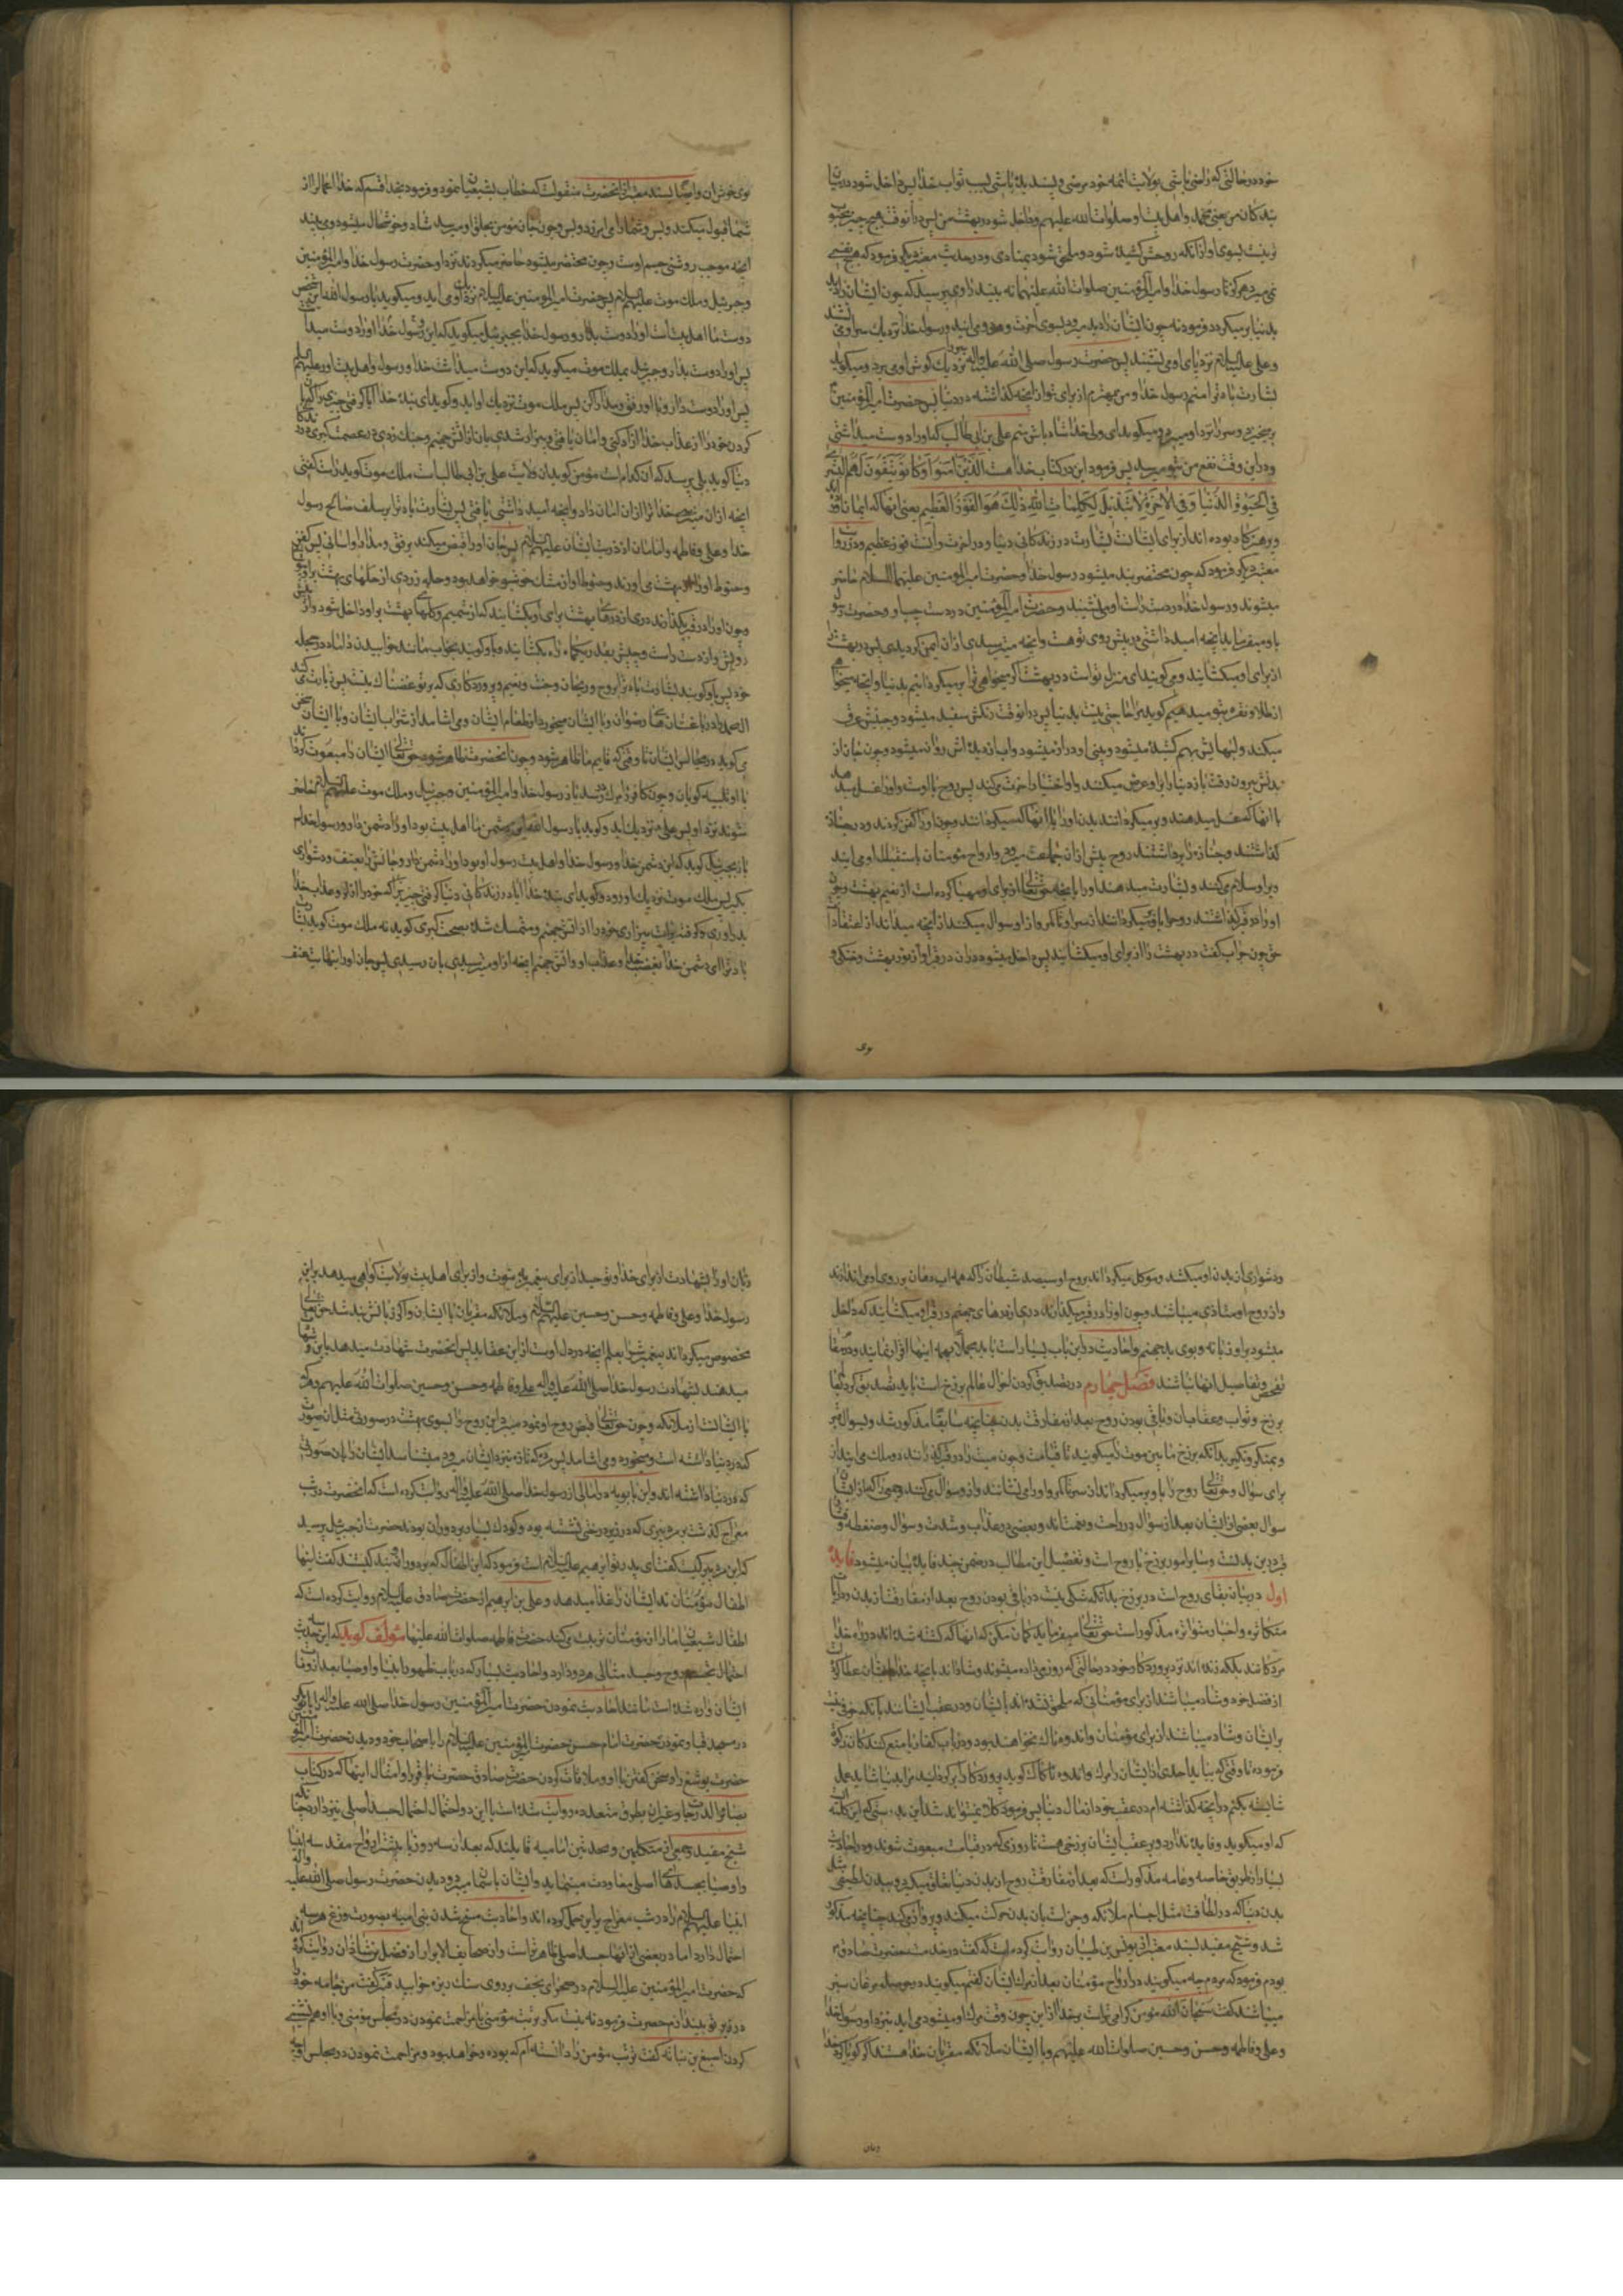 خود در حالتی که راضی باشی بولایت ائمه خود مرضی و پسندیده باشی بسبب ثواب خدا پس داخل شو در میان
بندکان من یعنی محمد و اهل بیت او صلوات الله علیهم و داخل شو در بهشت من پس در آنوقت هیچ چیز محبوب
تر نیست بسوی او از آنکه روحش کشیده شود و ملحق شود بمنادی و در حدیث معتبر دیکر فرمود که هیچ نفسی
نمی میرد هرکز تا رسول خدا و امیر المؤمنین صلوات الله علیهما نه بیند راوی پرسید که چون ایشان را دید
بدنیا بر میکردد فرمود نه چون ایشان را دید میرود بسوی آخرت و می آیند رسول خدا نزدیک سر او می
و علی علیه السلام نزد پای او می نشیند پس حضرت رسول صلی الله علیه واله نزدیک کوش او می برد و میکوید
بشارت باد ترا منم رسول خدا و من بهترم از برای تو از آنچه کذاشته در دنیا پس حضرت امیر المؤمنین
بر میخیزد و سر را نزد او میبرد و میکوید ای ولی خدا شاد باش منم علی بن ابی طالب که او را دوست میداشتی
و در این وقت نفع من بتو میرسد پس فرمود این در کتاب خدا هست الذین امنوا و کانوا یتقون لهم البشری
فی الحیوة الدنیا و فی الاخرة لا تبدیل لکلمات الله ذلک هو الفوز العظیم یعنی آنها که ایمان آورده
و پرهیزکار بوده اند از برای ایشانست بشارت در زندکانی دنیا و در آخرت و آنست فوز عظیم و در روایت
معتبر دیکر فرمود که چون محتضر بند میشود رسول خدا و حضرت امیر المؤمنین علیهما السلام حاضر
میشوند و رسول خدا در دست راست او می نشیند و حضرت امیر المؤمنین در دست چپ او و حضرت رسول
باو میفرماید آنچه امید داشتی در پیش روی تو هست و آنچه میترسیدی از آن ایمن کردیدی پس در بهشت را
از برای او میکشایند و می کویند این منزل تواست در بهشت اکر میخواهی ترا بر میکردانیم بدنیا و آنچه میخواهی
از طلا و نقره بتو میدهیم کوید مرا حاجتی نیست بدنیا پس در آنوقت رنکش سفید میشود و جبینش عرق
میکند و لبهایش بهم کشیده میشود و بینی او دراز میشود و آب از دیده اش روان میشود و چون جان از
بدنش بیرون رفت باز دنیا را باو عرض میکنند و او اختیار آخرت می کند پس روح با اوست و او را غسل میدهد
با آنها که غسل میدهند و بر میکرداند بدن او را با آنها که میکردانند و چون او را کفن کردند و در جنازه
کذاشتند و جنازه را برداشتند روح پیش از آن جماعت میرود و ارواح مؤمنان باستقبال او می آیند
و بر او سلام می کنند و بشارت میدهند او را بآنچه حق تعالی از برای او مهیا کرده است از نعیم بهشت و چون
او را در قبر کذاشتند روح را باو بر میکردانند از سر او تا کمر و از او سوال میکنند از آنچه میداند از اعتقادات
حق چون جواب کفت در بهشت را از برای او میکشایند پس داخل میشود در آن در قبر او از نور بهشت و خنکی و
وی
وی خوش آن و ایضا بسند معتبر از آنحضرت منقولست که خطاب بشیعیان نمود و فرمود بخدا قسم که خدا اعمال را از
شما قبول میکند و بس و شما را می آمرزد و بس و چون جان مؤمن بحلق او میرسد شاد و خوشحال میشود و می بیند
آنچه موجب روشنی چشم اوست و چون محتضر میشود حاضر میکردند نزد او حضرت رسول خدا و امیر المؤمنین
و جبرئیل و ملک موت علیهم السلام پس حضرت امیر المومنین علیه السلام نزدیک او می آید و میکوید یا رسول الله این شخص
دوست ما اهل بیت است او را دوست بدار و رسول خدا بجبرئیل میکوید که این رسول خدا را دوست میداشت
پس او را دوست بدار و جبرئیل بملک موت میکوید که این دوست میداشت خدا و رسول و اهل بیت او را علیهم السلام
پس او را دوست دار و با او رفق و مدارا کن پس ملک موت نزدیک او آید و کوید ای بنده خدا آیا کرفتی چیزی برای
کردن خود را از عذاب خدا آزاد کنی و امان یافتی و بیزار شدی بآن از آتش جهنم و چنک زدی در عصمت کبری در
دنیا کوید بلی پرسد که آن کدام است مؤمن کوید آن ولایت علی بن ابی طالب است ملک موت کوید راست کفتی
آنچه از آن میترسیدی خدا ترا از آن امان داد و آنچه امید داشتی یافتی پس بشارت باد ترا بر سلف صالح رسول
خدا و علی و فاطمه و امامان از ذریت ایشان علیهم السلام پس جان او را قبض میکند برفق و مدارا و آسانی پس کفن
و حنوط او را از بهشت می آورند و حنوط او از مشک خوشبو خواهد بود و حله زردی از حلهای بهشت بر او
و چون او را در قبر میکذارند دری از درهای بهشت برای او میکشایند که از شمیم و کلهای بهشت بر او داخل شود و از
او پیش و از دست راست و چپش بقدر یکماهه راه بکشایند و باو کویند بخواب مانند خوابیدن داماد در حجله
خود پس باو کویند بشارت باد ترا بروح و ریحان و جنت و نعیم و پروردکاری که بر تو غضبناک نیست پس زیارت می کند
ال محمد را در باغستانهای رضوان و با ایشان میخورد از طعام ایشان و می آشامد از شراب ایشان و با ایشان سخن
می کوید در مجالس ایشان تا وقتی که قایم ما ظاهر شود و چون آنحضرت ظاهر شود حق تعالی ایشان را مبعوث کرداند
با او تلبیه کویان و چون کافر را مرک رسد باز رسول خدا و امیر المؤمنین و جبرئیل و ملک موت علیهم السلام حاضر
شوند نزد او پس علی نزدیک آید و کوید یا رسول الله این دشمن ما اهل بیت بود او را دشمن دار و رسول خدا
باز بجبرئیل کوید که این دشمن خدا و رسول خدا و اهل بیت رسول او بود او را دشمن دار و جانش را بعنف و دشواری
بکیر پس ملک موت نزدیک او رود و کوید ای بنده خدا آیا در زندکانی دنیا کرفتی چیزی را که خود را از آن از عذاب خدا
بدر آوری و کرفتی برات بیزاری خود را از آتش جهنم و متمسک شده بعصمت کبری کوید نه ملک موت کوید بشارت
باد ترا ای دشمن خدا بغضب خدا و عذاب او و آتش جهنم آنچه از او میترسیدی بآن رسیدی پس جان او را بنهایت عنف
و دشواری از بدن او میکشد و موکل میکرداند بروح او سیصد شیطان را که همه آب دهان بر روی او می اندازند
و از روح او متاذی میباشند و چون او را در قبر میکذارند دری از درهای جهنم در قبر او میکشایند که داخل
میشود بر او زبانه و بوی بد جهنم و احادیث در این باب بسیار است باید مجملا بهمه اینها اقرار نمایند و در مقام
تفحص و تفاصیل آنها نباشند فصل چهارم در تصدیق کردن احوال عالم برزخ است باید تصدیق کردن بقا
برزخ و ثواب و عقاب آن و باقی بودن روح بعد از مفارقت بدن چنانچه سابقا مذکور شد و بسوال قبر
و بمنکر و نکیر بدانکه برزخ ما بین موت را میکویند تا قیامت و چون میت را در قبر کذارند دو ملک می آیند از
برای سؤال و حق تعالی روح را باو بر میکرداند از سر تا کمر و او را می نشانند و از او سؤال می کنند و جمعی را که از ایشان
سوال بعضی از ایشان بعد از سؤال در راحت و نعمتند و بعضی در عذاب و شدت و سؤال و ضغطه و
قبر در این بدنست و سایر امور برزخ با روح است و تفصیل این مطالب در ضمن چند فایده بیان میشود فایده
اول در بیان بقای روح است در برزخ بدانکه شکی نیست در باقی بودن روح بعد از مفارقت از بدن و در آیات
متکاثره و اخبار متواتره مذکور است حق تعالی میفرماید کمان مکن که آنها که کشته شده اند در راه خدا
مردکانند بلکه زنده اند نزد پروردکار خود در حالتی که روزی داده میشوند و شادند بآنچه خدا بایشان عطا کرده
از فضل خود و شاد میباشند از برای مؤمنانی که ملحق نشده اند بایشان و در عقب ایشانند بآنکه خوفی نیست
بر ایشان و شاد میباشند از برای مؤمنان و اندوهناک نخواهند بود و در باب کفار یا منع کنندکان زکوة
فرموده تا وقتی که بیاید احدی از ایشان را مرک و اندوهناک کوید پروردکارا بر کردانید مرا بدنیا شاید عمل
شایسته بکنم در آنچه کذاشته ام در عقب خود از مال دنیا پس فرموده کلا نمیتواند شد این بدرستی که این کلمه
که او میکوید و فایده ندارد و در عقب ایشان برزخی هست تا روزی که در قیامت مبعوث شوند و در احادیث
بسیار از طریق خاصه و عامه مذکور است که بعد از مفارقت روح از بدن دنیا تعلق میکیرد ببدن لطیفی مثل
بدن دنیا که در لطافت مثل اجسام ملائکه و جن است بآن بدن حرکت میکند و پرواز می کند چنانچه مذکور
شد و شیخ مفید بسند معتبر از یونس بن ظبیان روایت کرده است که کفت در خدمت حضرت صادق
بودم فرمود که مردم چه میکویند در ارواح مؤمنان بعد از مرک ایشان کفتم میکویند در حوصله مرغان سبز
میباشند کفت سبحان الله مؤمن کرامی تر است بر خدا از این چون وقت مرک او میشود می آید بنزد او رسول خدا
و علی و فاطمه و حسن و حسین صلوات الله علیهم و با ایشان ملائکه مقربان خدا هستند اکر کویا کرد خدا
زبان
زبان او را بشهادت از برای خدا و توحید از برای پیغمبر به نبوت و از برای اهل بیت بولایت کواهی میدهد بر این
رسول خدا و علی و فاطمه و حسن و حسین علیهم السلام و ملائکه مقربان با ایشان و اکر زبانش بند شد حق تعالی
مخصوص میکرداند پیغمبرش را بعلم آنچه در دل اوست از این عقاید پس آنحضرت شهادت میدهد باین و شهادت
میدهند بشهادت رسول خدا صلی الله علیه واله علی و فاطمه و حسن و حسین صلوات الله علیهم و هر که
با ایشانست از ملائکه و چون حق تعالی قبض روح او نمود میبرد این روح را بسوی بهشت در صورتی مثل آن صورت
که در دنیا داشته است و میخورد و می آشامد پس هر که تازه بنزد ایشان میرود میشناسد ایشان را بآن صورتی
که در دنیا داشته اند و ابن بابویه در امالی از رسول خدا صلی الله علیه واله روایت کرده است که آنحضرت در شب
معراج کذشت بر مرد پیری که در زیر درختی نشسته بود و کودک بسیار بر دور آن بودند حضرت از جبرئیل پرسید
که این مرد پیر کیست کفت ای پدر تو ابرهیم علیه السلام است فرمود که این اطفال که بر دور او کیستند کفت اینها
اطفال مؤمنانند ایشان را غذا میدهد و علی بن ابرهیم از حضرت صادق علیه السلام روایت کرده است که
اطفال شیعیان ما را از مؤمنان تربیت می کند حضرت فاطمه صلوات الله علیها مؤلف کوید که این حدیث
احتمال تجسم روح و جسد مثالی هر دو دارد و احادیث بسیار که در باب ظهور انبیا و اوصیا بعد از وفات
ایشان وارد شده است مانند احادیث نمودن حضرت امیر المؤمنین رسول خدا صلی الله علیه واله را بابوبکر
در مسجد قبا و نمودن حضرت امام حسن حضرت امیر المؤمنین علیه السلام را باصحاب خود و دیدن حضرت امیر المؤمنین
حضرت یوشع را و سخن کفتن با او و ملاقات کردن حضرت صادق حضرت باقر را و امثال اینها که در کتاب
بصایر الدرجات و غیر آن بطرق متعدده روایت شده است با این دو احتمال احتمال جسد اصلی نیز دارد چنانکه
شیخ مفید و جمعی از متکلمین و محدثین امامیه قایلند که بعد از سه روز یا بیشتر ارواح مقدسه انبیا
و اوصیا بجسدهای اصلی معاودت مینماید و ایشان باسمان میروند و دیدن حضرت رسول صلی الله علیه واله
انبیا علیهم السلام را در شب معراج بر این حمل کرده اند و احادیث مسخ شدن بنی امیه بصورت وزغ هر سه
احتمال دارد اما در بعضی از آنها جسد اصلی ظاهرتر است و از بصایر الابرار از فضل بن شاذان روایت کرده اند
که حضرت امیر المؤمنین علیه السلام در صحرای نجف بر روی سنک ریزه خوابید قنبر کفت من جامه خود را
در زیر تو بیندازم حضرت فرمود نه نیست مکر تربت مؤمنی یا مزاحمت نمودن در مجلس مؤمنی و با او همنشینی
کردن اصبغ بن نباته کفت تربت مؤمن را دانسته ام که بوده و خواهد بود و مزاحمت نمودن در مجلس او چه